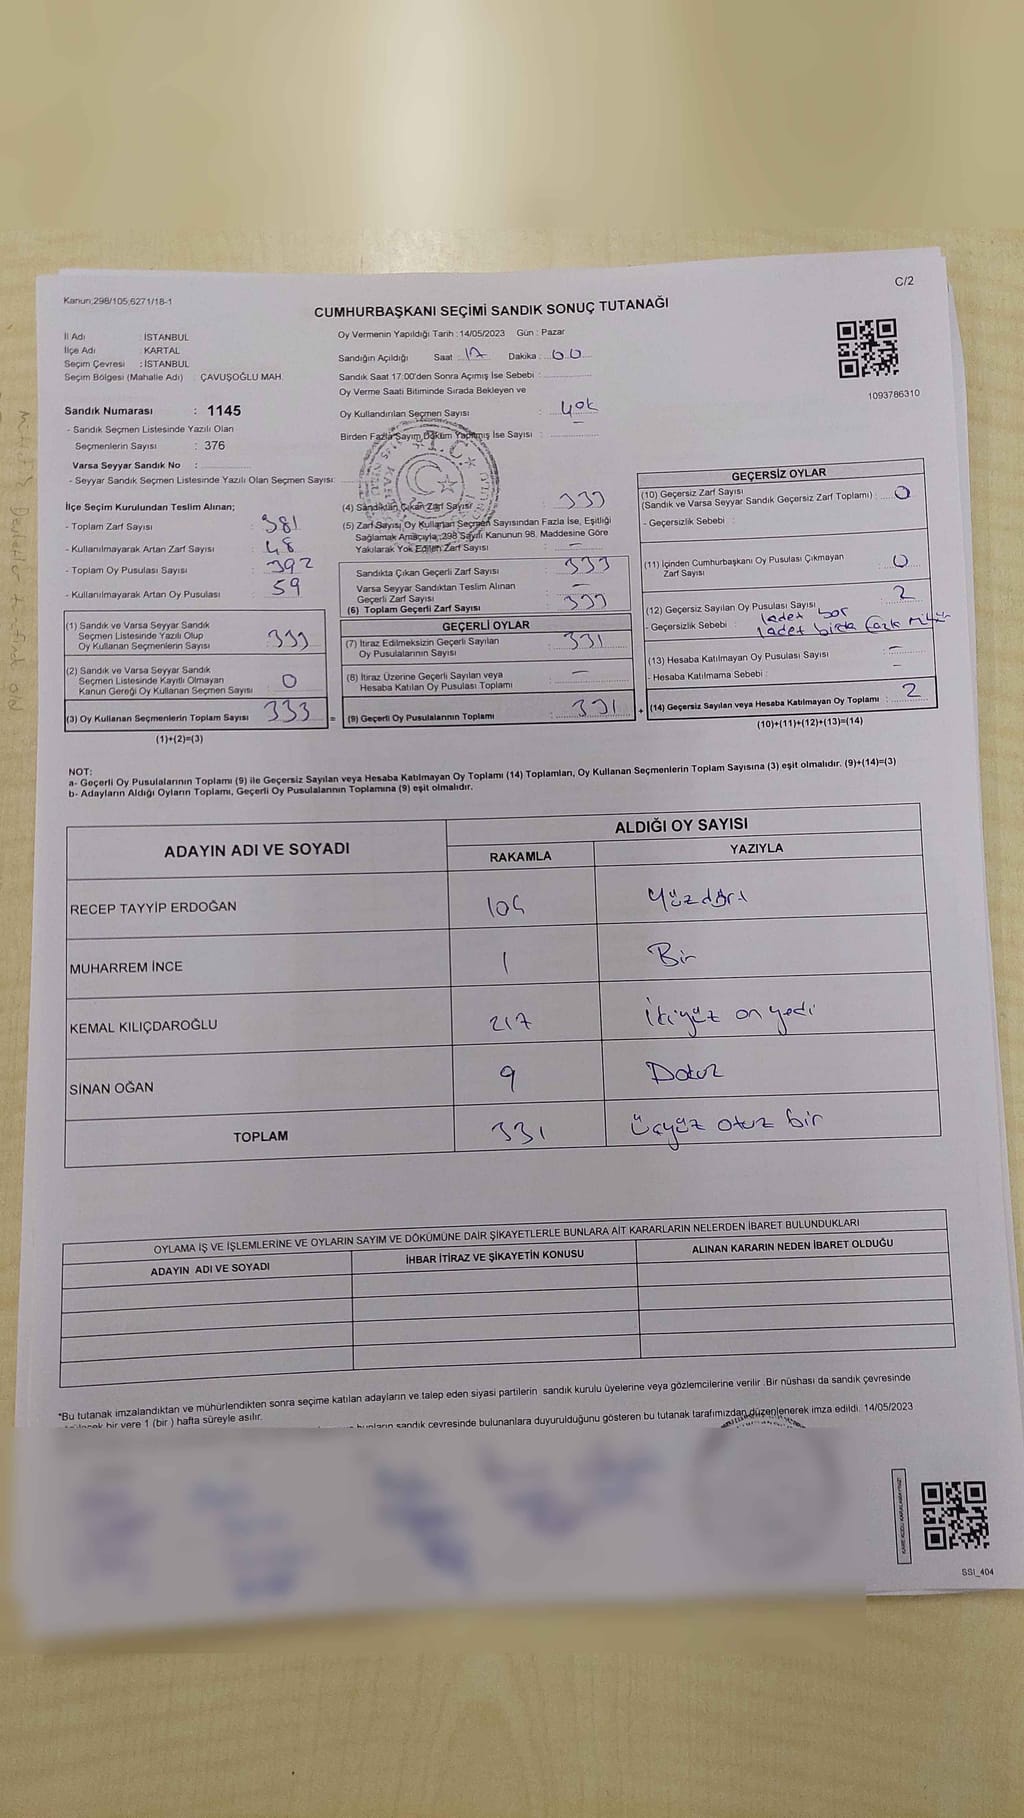 C/2
Kanun;298/105;6271/18-1
CUMHURBAŞKANI SEÇİMİ SANDIK SONUÇ TUTANAĞI
İl Adı : İSTANBUL
İlçe Adı : KARTAL
Seçim Çevresi : İSTANBUL
Seçim Bölgesi (Mahalle Adı) : ÇAVUŞOĞLU MAH.
Sandık Numarası : 1145
- Sandık Seçmen Listesinde Yazılı Olan
Seçmenlerin Sayısı : 376
Varsa Seyyar Sandık No :
- Seyyar Sandık Seçmen Listesinde Yazılı Olan Seçmen Sayısı:
Oy Vermenin Yapıldığı Tarih : 14/05/2023 Gün : Pazar
Sandığın Açıldığı Saat : 17 Dakika : 00
Sandık Saat 17:00'den Sonra Açımış İse Sebebi :
Oy Verme Saati Bitiminde Sırada Bekleyen ve
Oy Kullandırılan Seçmen Sayısı : yok
Birden Fazla Sayım Döküm Yapılmış İse Sayısı :
T.C.
1093786310
İlçe Seçim Kurulundan Teslim Alınan;
- Toplam Zarf Sayısı : 381
- Kullanılmayarak Artan Zarf Sayısı : 48
- Toplam Oy Pusulası Sayısı : 392
- Kullanılmayarak Artan Oy Pusulası : 59
(1) Sandık ve Varsa Seyyar Sandık
Seçmen Listesinde Yazılı Olup
Oy Kullanan Seçmenlerin Sayısı : 333
(2) Sandık ve Varsa Seyyar Sandık
Seçmen Listesinde Kayıtlı Olmayan
Kanun Gereği Oy Kullanan Seçmen Sayısı : 0
(3) Oy Kullanan Seçmenlerin Toplam Sayısı : 333 =
(1)+(2)=(3)
(4) Sandıktan Çıkan Zarf Sayısı : 333
(5) Zarf Sayısı, Oy Kullanan Seçmen Sayısından Fazla İse, Eşitliği
Sağlamak Amacıyla;298 Sayılı Kanunun 98. Maddesine Göre
Yakılarak Yok Edilen Zarf Sayısı : -
Sandıkta Çıkan Geçerli Zarf Sayısı : 333
Varsa Seyyar Sandıktan Teslim Alınan
Geçerli Zarf Sayısı : -
(6) Toplam Geçerli Zarf Sayısı : 333
GEÇERLİ OYLAR
(7) İtiraz Edilmeksizin Geçerli Sayılan
Oy Pusulalarının Sayısı : 331
(8) İtiraz Üzerine Geçerli Sayılan veya
Hesaba Katılan Oy Pusulası Toplamı : -
(9) Geçerli Oy Pusulalarının Toplamı : 331 +
GEÇERSİZ OYLAR
(10) Geçersiz Zarf Sayısı
(Sandık ve Varsa Seyyar Sandık Geçersiz Zarf Toplamı) : 0
- Geçersizlik Sebebi :
(11) İçinden Cumhurbaşkanı Oy Pusulası Çıkmayan
Zarf Sayısı : 0
(12) Geçersiz Sayılan Oy Pusulası Sayısı : 2
- Geçersizlik Sebebi : 1 adet boş
1 adet birden fazla mühür
(13) Hesaba Katılmayan Oy Pusulası Sayısı : -
- Hesaba Katılmama Sebebi : -
(14) Geçersiz Sayılan veya Hesaba Katılmayan Oy Toplamı : 2
(10)+(11)+(12)+(13)=(14)
NOT:
a- Geçerli Oy Pusulalarının Toplamı (9) ile Geçersiz Sayılan veya Hesaba Katılmayan Oy Toplamı (14) Toplamları, Oy Kullanan Seçmenlerin Toplam Sayısına (3) eşit olmalıdır. (9)+(14)=(3)
b- Adayların Aldığı Oyların Toplamı, Geçerli Oy Pusulalarının Toplamına (9) eşit olmalıdır.
ADAYIN ADI VE SOYADI ALDIĞI OY SAYISI
RAKAMLA YAZIYLA
RECEP TAYYİP ERDOĞAN 104 Yüzdört
MUHARREM İNCE 1 Bir
KEMAL KILIÇDAROĞLU 217 İkiyüz on yedi
SİNAN OĞAN 9 Dokuz
TOPLAM 331 Üçyüz otuz bir
OYLAMA İŞ VE İŞLEMLERİNE VE OYLARIN SAYIM VE DÖKÜMÜNE DAİR ŞİKAYETLERLE BUNLARA AİT KARARLARIN NELERDEN İBARET BULUNDUKLARI
ADAYIN ADI VE SOYADI İHBAR İTİRAZ VE ŞİKAYETİN KONUSU ALINAN KARARIN NEDEN İBARET OLDUĞU
*Bu tutanak imzalandıktan ve mühürlendikten sonra seçime katılan adayların ve talep eden siyasi partilerin sandık kurulu üyelerine veya gözlemcilerine verilir .Bir nüshası da sandık çevresinde
bir yere 1 (bir ) hafta süreyle asılır.
bunların sandık çevresinde bulunanlara duyurulduğunu gösteren bu tutanak tarafımızdan düzenlenerek imza edildi. 14/05/2023
SSI_404